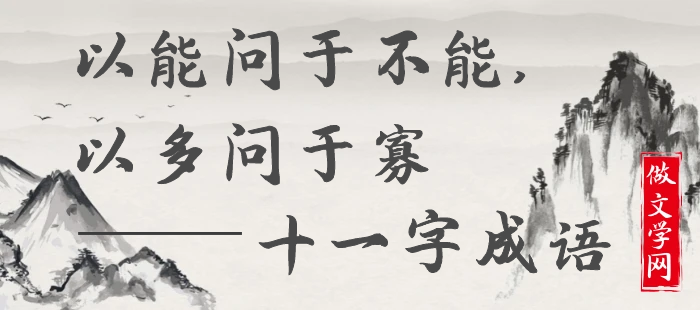 以能问于不能,
以多问于寡
——十一字成语
做文学网